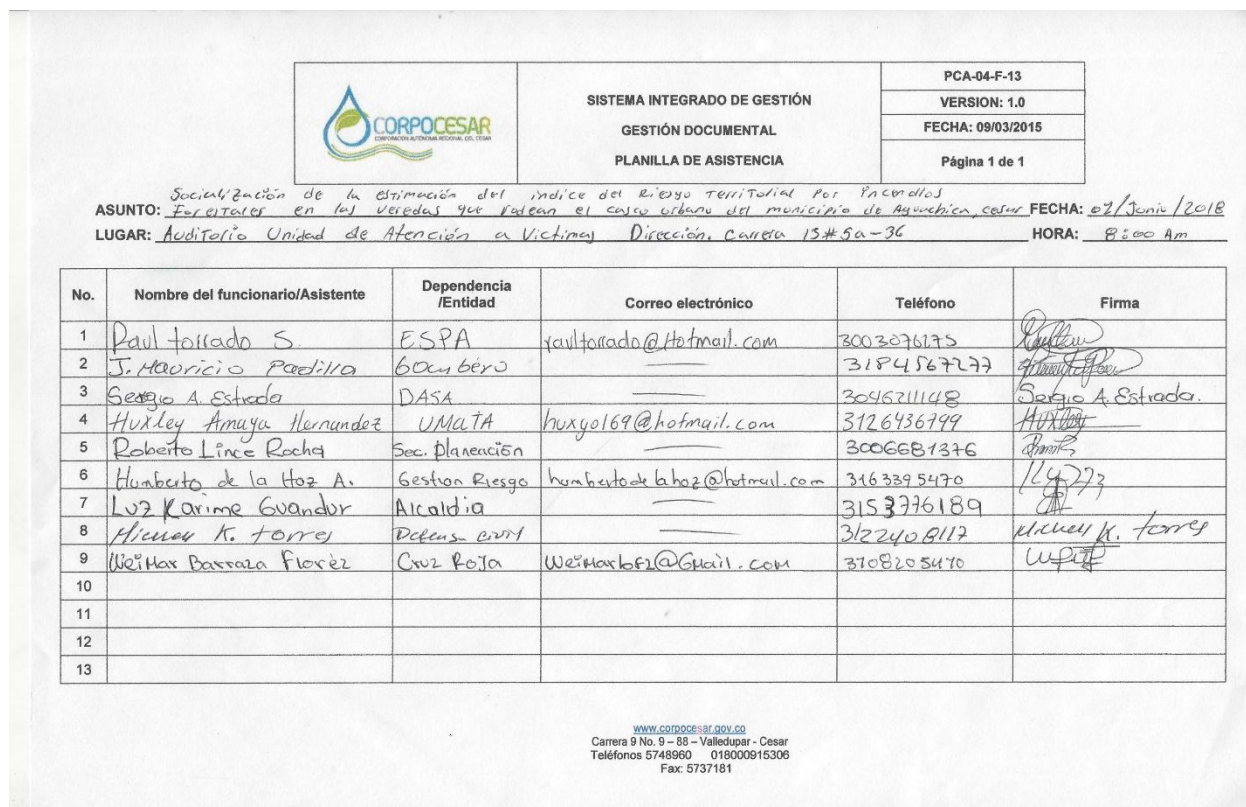 CORPOCESAR
CORPORACIÓN AUTÓNOMA REGIONAL DEL CESAR
SISTEMA INTEGRADO DE GESTIÓN
GESTIÓN DOCUMENTAL
PLANILLA DE ASISTENCIA
PCA-04-F-13
VERSION: 1.0
FECHA: 09/03/2015
Página 1 de 1
Socialización de la estimación del indice del Riesgo Territorial Por Incendios
ASUNTO: Forestales en las veredas que rodean el casco urbano del municipio de Aguachica, cesar FECHA: 07/Junio/2018
LUGAR: Auditorio Unidad de Atención a Victimas Dirección. Carrera 15#5a-36 HORA: 8:00 Am
No. Nombre del funcionario/Asistente Dependencia /Entidad Correo electrónico Teléfono Firma
1 Raul torrado S. ESPA raultorrado@Hotmail.com 3003076175
2 J. Mauricio Padilla bombero 3184567277
3 Sergio A. Estrada DASA 3046211148 Sergio A. Estrada.
4 Huxley Amaya Hernandez UMATA huxyo169@hotmail.com 3126436799 Huxley
5 Roberto Lince Rocha Sec. planeación 3006681376
6 Humberto de la Hoz A. Gestion Riesgo humbertodelahoz@hotmail.com 3163395470
7 Luz Karime Guandur Alcaldia 3153776189
8 K. torres Defensa civil 3122408117 K. torres
9 Weimar Barraza Florez Cruz Roja Weimarbf2@Gmail.com 3708205470
10
11
12
13
www.corpocesar.gov.co
Carrera 9 No. 9 – 88 – Valledupar - Cesar
Teléfonos 5748960 018000915306
Fax: 5737181